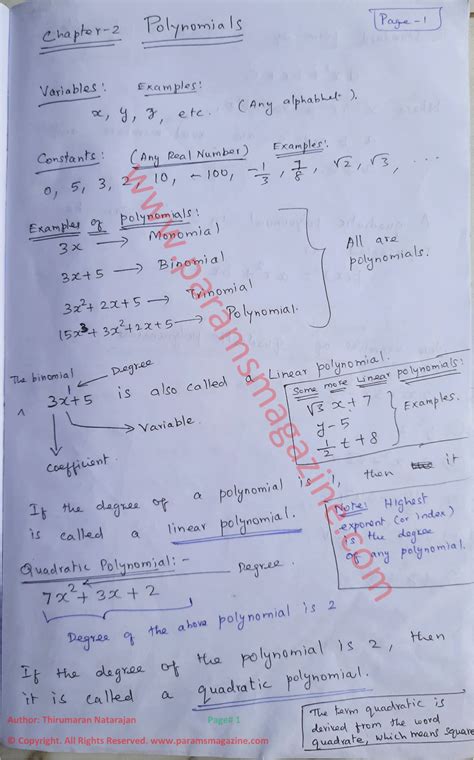 Page-1
Chapter-2 Polynomials
Variables: Examples:
x, y, z, etc. (Any alphabhet).
Constants: (Any Real Number) Examples:
0, 5, 3, 2, 10, -100, -1/3, 7/8, √2, √3, ...
Examples of polynomials:
3x → Monomial
3x+5 → Binomial
3x²+2x+5 → Trinomial
15x³+3x²+2x+5 → Polynomial.
All are
polynomials.
Degree
The binomial
^ 3x¹+5 is also called a Linear polynomial.
Variable
Coefficient
Some more Linear polynomials:
√3 x+7
y-5
1/2 t+8
Examples.
If the degree of a polynomial is 1, then it
is called a linear polynomial.
Note: Highest
exponent (or index)
is the degree
of any polynomial.
Quadratic Polynomial:-
Degree
7x²+3x+2
Degree of the above polynomial is 2
If the degree of the polynomial is 2, then
it is called a quadratic polynomial.
The term quadratic is
derived from the word
quadrate, which means square
www.paramsmagazine.com
Author: Thirumaran Natarajan Page# 1
© Copyright. All Rights Reserved. www.paramsmagazine.com